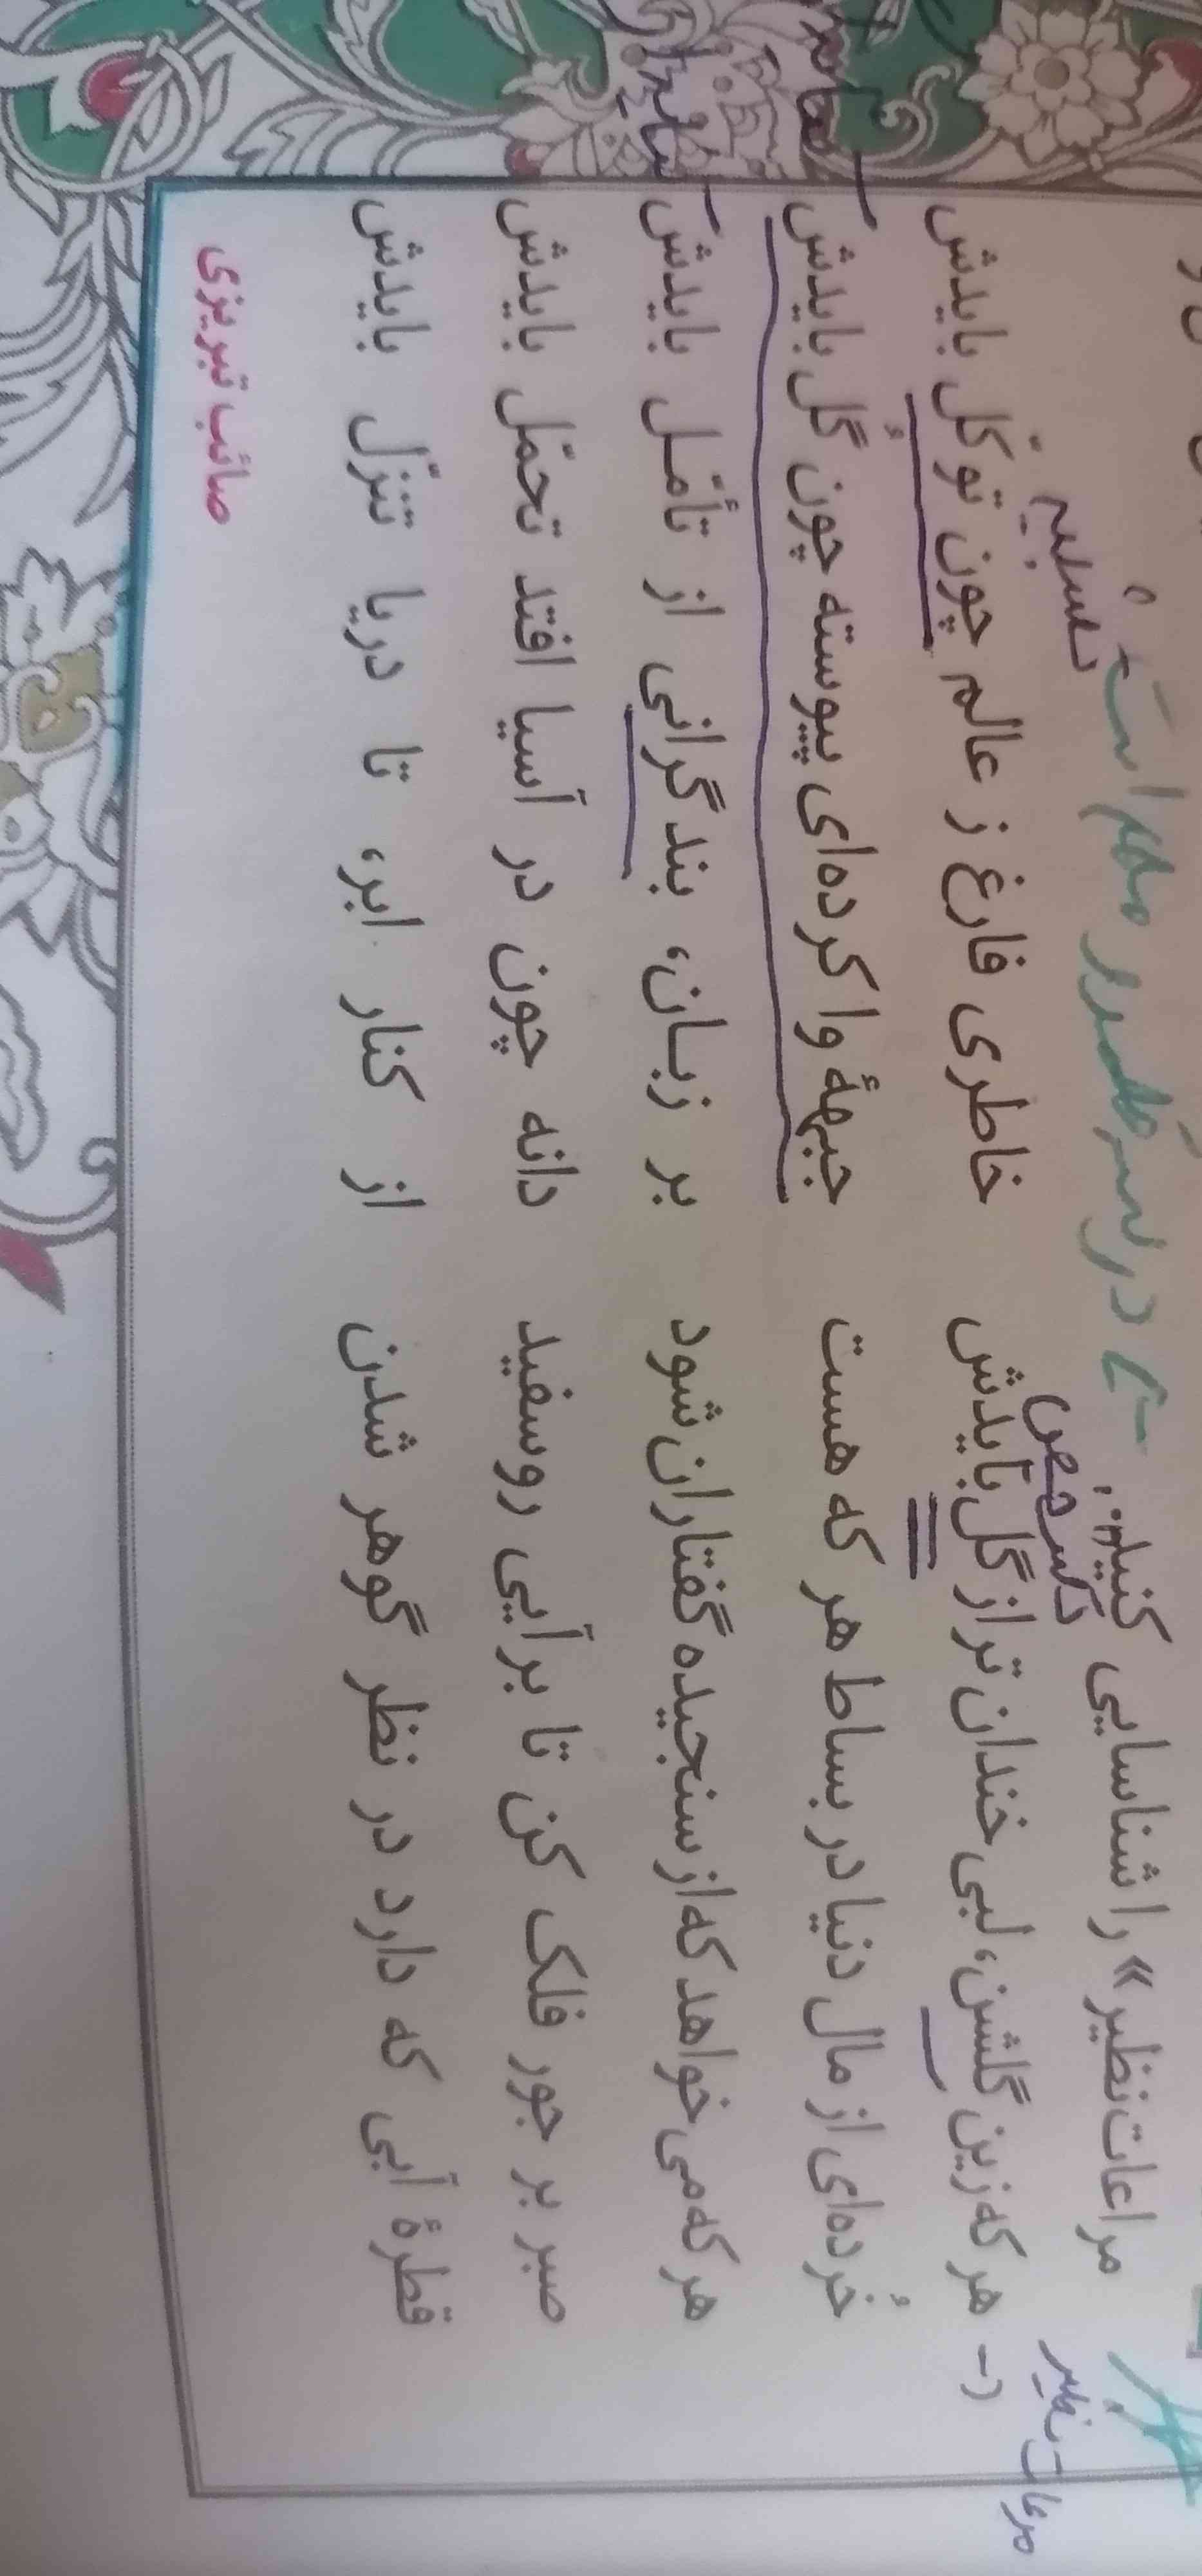 مراعات‌نظیر» را شناسایی کنید.
در
است
مراعات نظیر
تشخیص
تشبیه
۱- هر که زین گلشن، لبی خندان‌تر از گل بایدش خاطری فارغ ز عالم چون توکّل بایدش
خُرده‌ای از مال دنیا در بساط هر که هست جبههٔ واکرده‌ای پیوسته چون گُل بایدش
هر که می‌خواهد که از سنجیده‌گفتاران شود بر زبان، بند گرانی از تأمّل بایدش
صبر بر جور فلک کن تا برآیی روسفید دانه چون در آسیا افتد تحمّل بایدش
قطرهٔ آبی که دارد در نظر گوهر شدن از کنار ابر، تا دریا تنزّل بایدش
صائب تبریزی